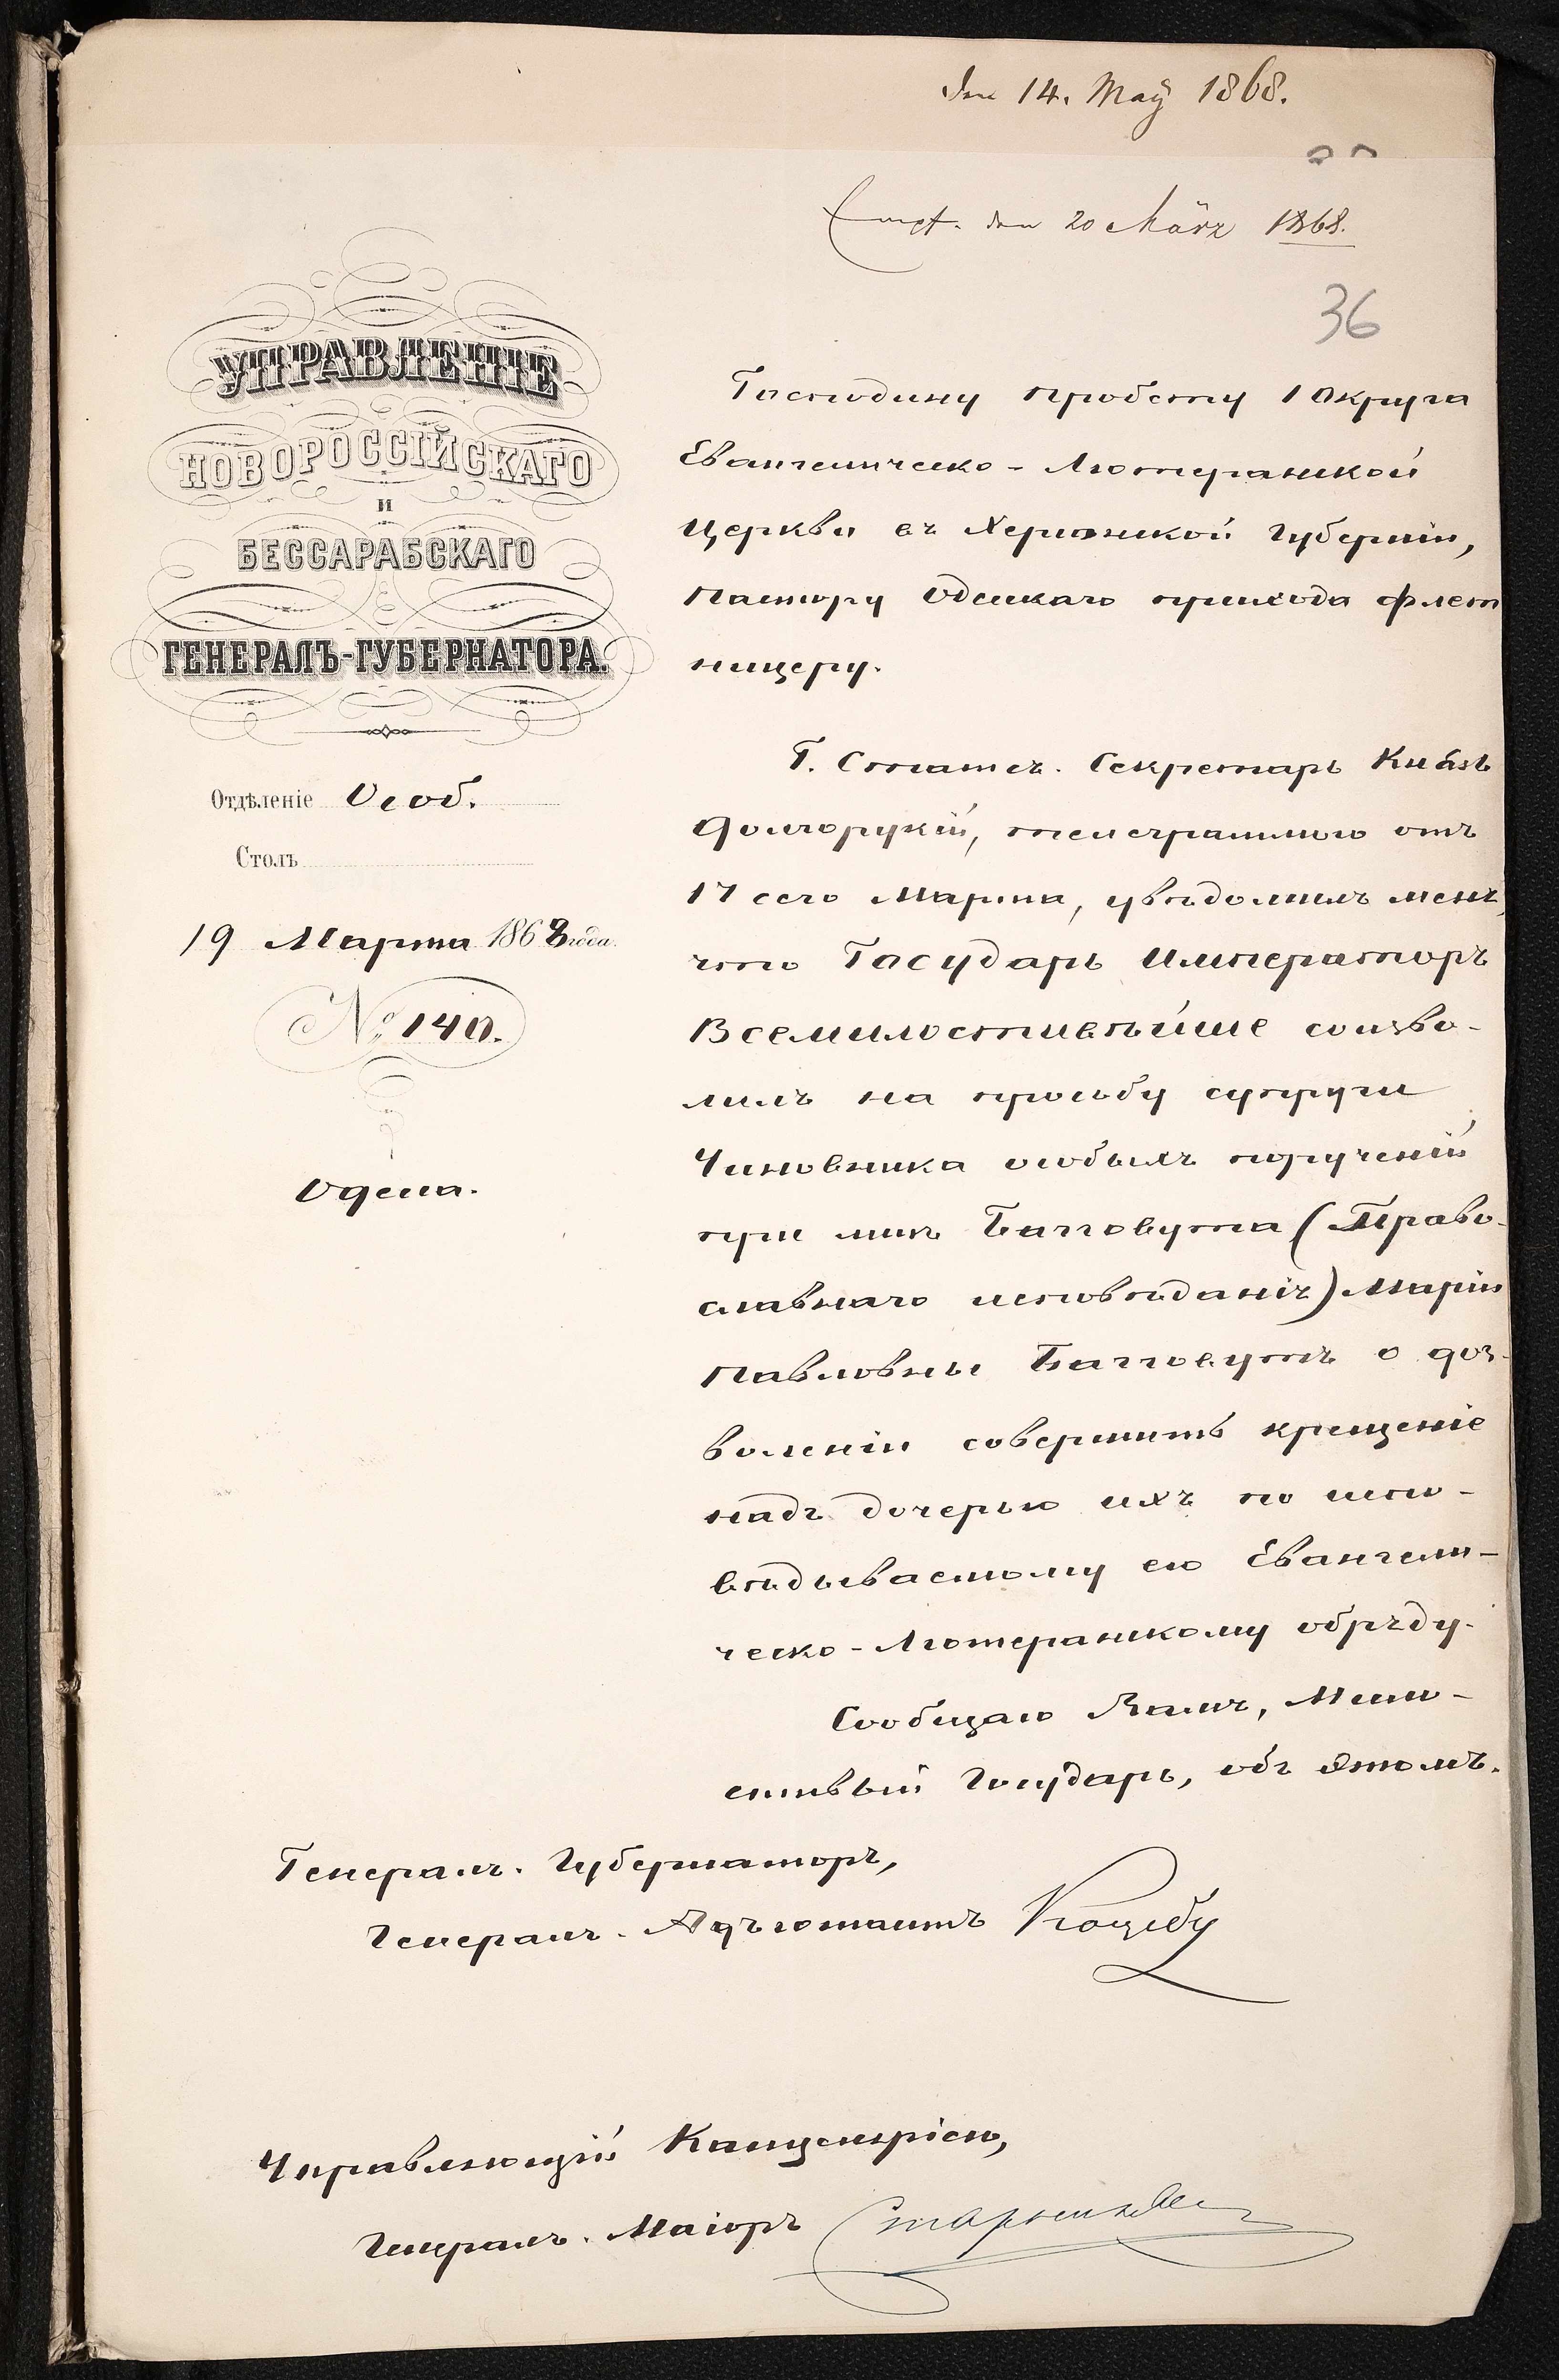 den 14. May 1868.
Empf. den 20 März 1868.
36
УПРАВЛЕНІЕ
НОВОРОССІЙСКАГО
И
БЕССАРАБСКАГО
ГЕНЕРАЛЪ-ГУБЕРНАТОРА.
Отдѣленіе Особ.
Столъ
19 Марта 1868 года.
№ 140.
Одесса.
Господину пробсту 1 Округа
Евангелическо-Лютеранской
Церкви въ Херсонской Губерніи,
Пастору Одесскаго прихода Флет
ницеру.
Г. Статсъ. Секретарь Князь
Долгорукій, телеграммою отъ
17 сего Марта, увѣдомилъ меня,
что Государь Императоръ
Всемилостивѣйше соизво-
лилъ на просьбу супруги
Чиновника особыхъ порученій
при мнѣ Багговута (Право-
славнаго исповѣданія) Маріи
Павловны Багговутъ о доз-
воленіи совершить крещеніе
надъ дочерью ихъ по испо-
вѣдываемому ею Евангели-
ческо-Лютеранскому обряду.
Сообщаю Вамъ, Мило-
стивый Государь, объ этомъ.
Генералъ. Губернаторъ,
Генералъ. Адъютантъ Коцебу
Управляющій Канцеляріею,
Генералъ. Маіоръ